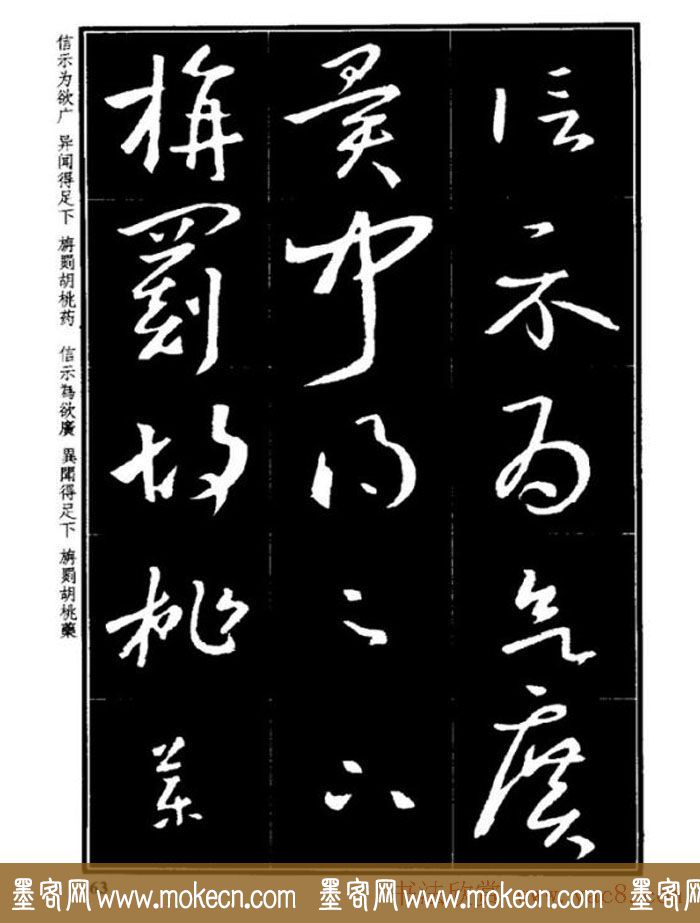 信示為欲廣
異聞得足下
旃罽胡桃藥
信示为欲广 异闻得足下 旃罽胡桃药 信示為欲廣 異聞得足下 旃罽胡桃藥
63
墨客网 www.mokecn.com 墨客网 www.mokecn.com 墨客网
书法欣赏